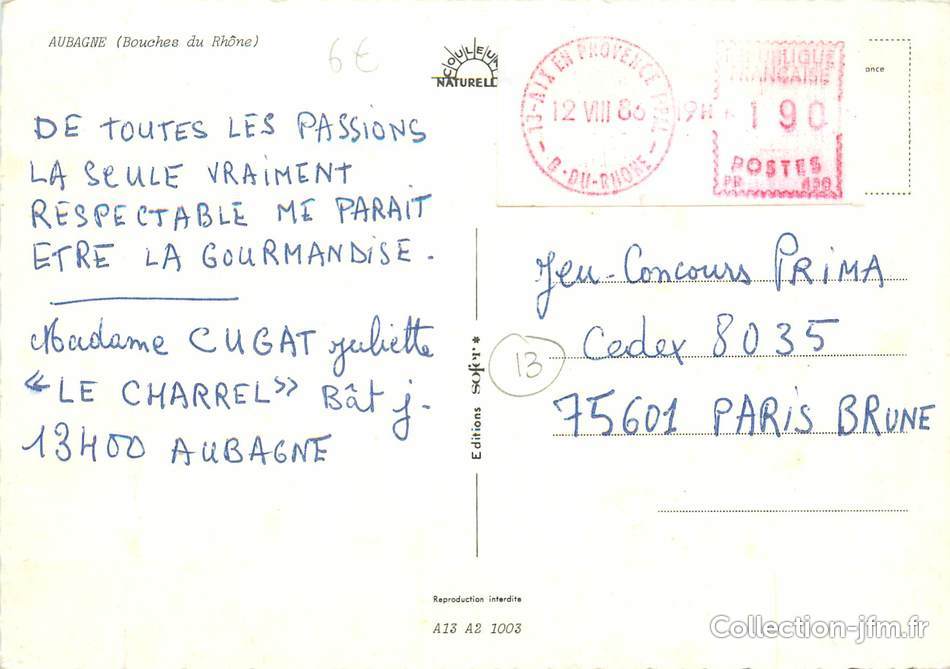 AUBAGNE (Bouches du Rhône)
6€
COULEUR
NATURELLE
13-AIX EN PROVENCE PPAL
12 VIII 86 19H
B.-DU-RHONE
REPUBLIQUE
FRANCAISE
190
POSTES
ance
DE TOUTES LES PASSIONS
LA SEULE VRAIMENT
RESPECTABLE ME PARAIT
ETRE LA GOURMANDISE.
Madame CUGAT Juliette
"LE CHARREL" Bât J.
13400 AUBAGNE
Editions sofer *
13
Jeu-Concours PRIMA
Cedex 8035
75601 PARIS BRUNE
Reproduction interdite
A13 A2 1003
Collection-jfm.fr